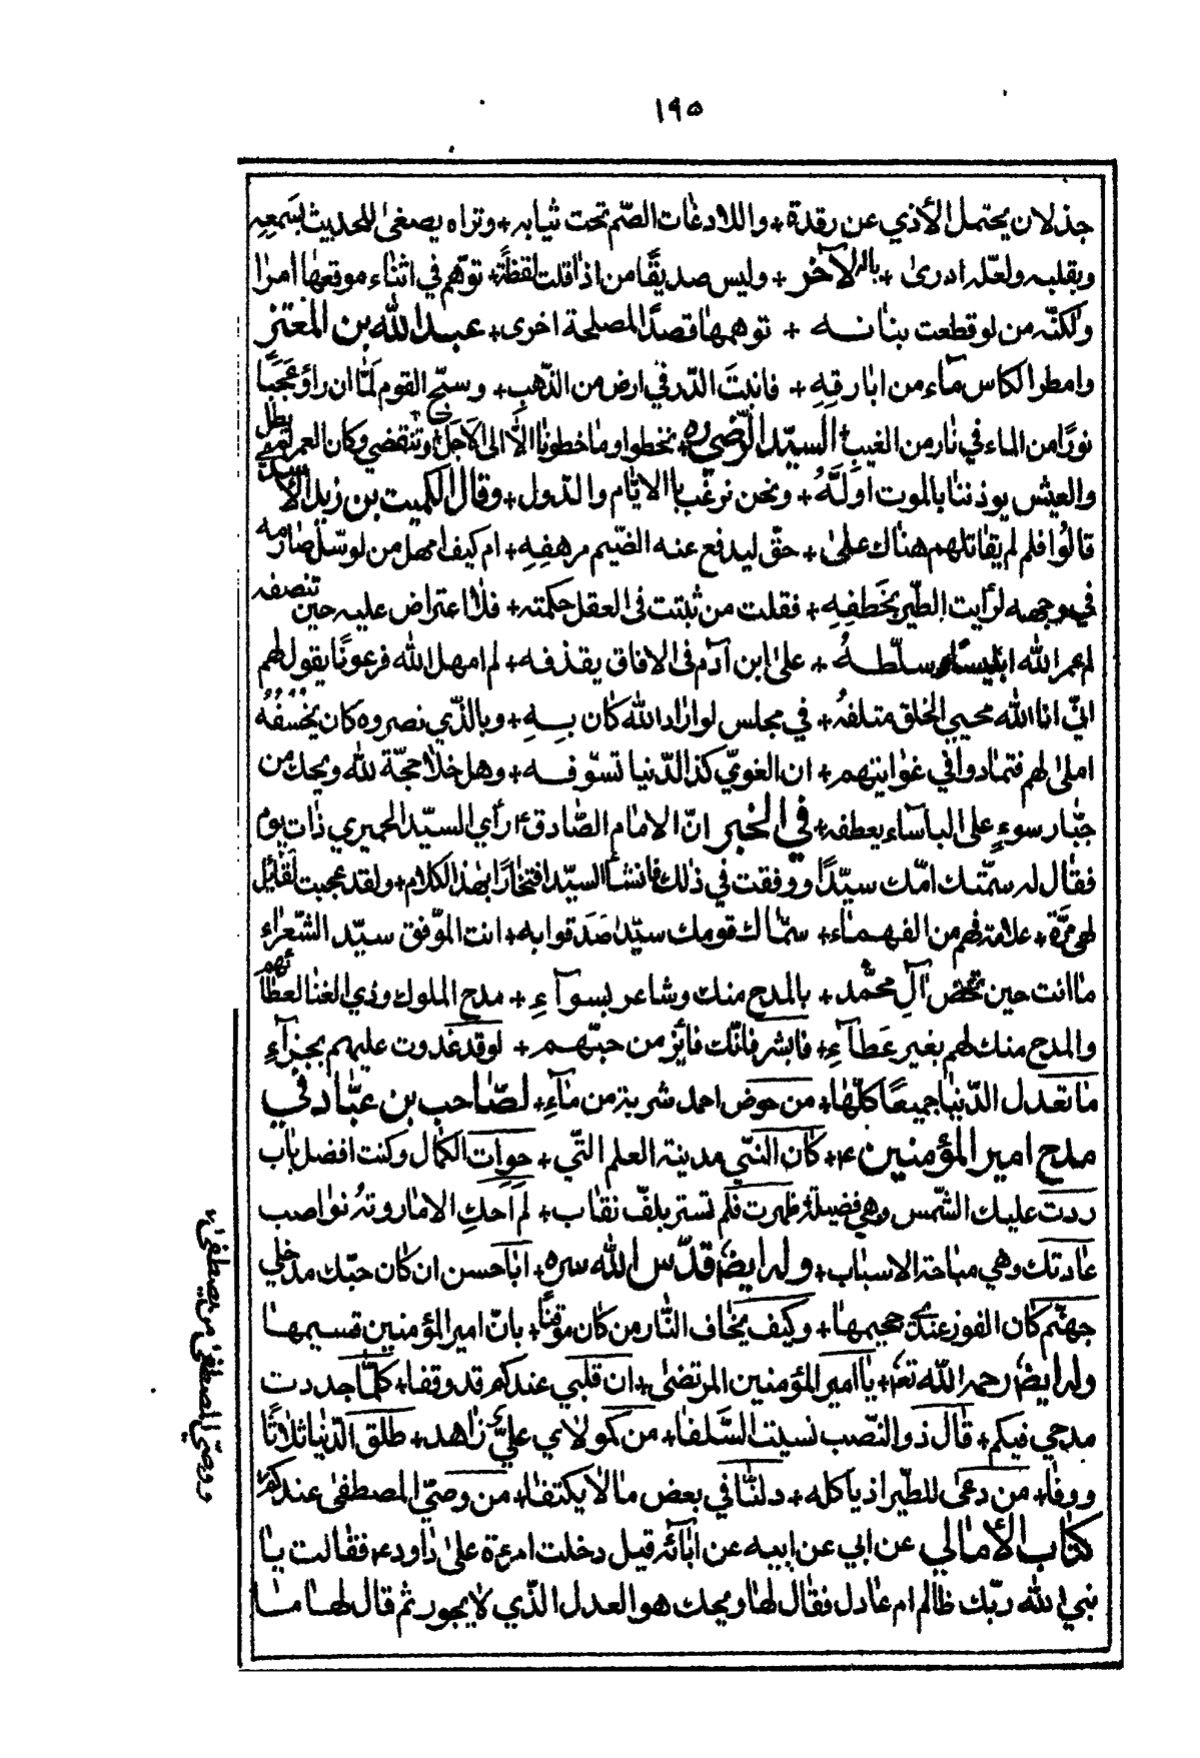 ١٩٥
جذلان يحتمل الأذي عن رقدة + واللادغات الصّم تحت ثيابه + وتراه يصغى للحديث بسَمعِه
وبقلبه ولعلّه ادرى به الآخر + وليس صديقًا من اذا قلت لفظةً + توّهم في اثناء موقعها امرا
ولكنّه من لو قطعت بنانه + توهمها قصدًا لمصلحة اخرى + عبد الله بن المعتز
وامطر الكاس مآء من ابارقِهِ + فانبتَ الدّر في ارض من الذّهبِ + وسبّح القوم لمّا ان رأؤ عَجَبًا
نورًا من الماء في نار من العنبِ + السيّد الرّضي ره + نخطوا وما خطونا الّا الى الاَجَل + وتنقضي وكان العمر لم يطل
والعيش يوذننا بالموت اوّلَهُ + ونحن نرغّب بالايّام والدّول + وقال الكميت بن زيد الأسدّي
قالوا فلم لم يقاتلهم هناك عليٰ + حقّ ليدفع عنه الضّيم مرهفِهِ + ام كيف امهل من لو سّل صارمه
في وجهه لرأيت الطّير تخَطفِهِ + فقلت من ثبتت في العقل حكمته + فلا اعتراض عليه حين تنصفه
لم عمر الله ابليسا وسلّطهُ + علي ابن آدم في الافاق يقذفه + لم امهل الله فرعونًا يقول لهم
انيّ انا الله محيي الخلق متلفهُ + في مجلس لو اراد الله كان بهِ + وبالذّي نصروه كان يخْسُفُهُ
املي لهم فتمادوا في غوايتهم + ان الغويّ كذا الدّنيا تسّوفه + وهل خلا حجّة لله ويحك من
جبّار سوءٍ على الباسآء يعطفه + في الخبر انّ الامام الصّادق ع رأي السيّد الحميري ذات يوم
فقال له سمّتك امّك سيّدًا ووفقت في ذلك فانشأ السيّد افتخارًا بهذا الكلام + ولقد عجبت لقائل
لي مّرة + علامة فهم من الفهماء + سمّاك قومك سيّدًا صَدَقوا به + انت الموّفق سيّد الشّعراء
ما انت حين تخصّ آل محمّد + بالمدح منك وشاعر بسوآءِ + مدح الملوك وذي الغنا لعطائهم
والمدح منك لهم بغير عَطآءِ + فابشر فانّك فايز من حبّهم + لو قد غدوت عليهم بجزآءِ
ما تعدل الدّنيا جميعًا كلّها + من حوض احمد شربة من مآءِ + لصّاحب بن عبّاد في
مدح امير المؤمنين ع + كان النّبي مدينة العلم التّي + حوات الكمال وكنت افضل باب
ردت عليك الشّمس وهي فضيلة + ظهرت فلم تستر بلفّ نقاب + لم اَحك الا ما روته نواصب
عادتك وهي مباحة الاسباب + وله ايضً قدّس الله سره + ابا حسن ان كان حبّك مدخلي
جهنّم كان الفوز عندي جحيمها + وكيف يخاف النّار من كان موقنًا + بانّ امير المؤمنين قسيمها
وله ايضً رحمه الله تع + يا امير المؤمنين المرتضى + ان قلبي عندكم قد وقفا + كلّما جددت
مدحي فيكم + قال ذو النّصب نسيت السّلفا + من كمولاي عليّ زاهد + طلق الدّنيا ثلاثًا
ووفا + من دعى للطّير اذ ياكله + دلنّا في بعض ما لا يكتفا + من وصّي المصطفى عندكم
ووصّي المصطفى من يصطفى
كتاب الأمالي عن ابي عن ابيه عن ابآئه قيل دخلت امرءة على داود ع فقالت يا
نبي الله ربّك ظالم ام عادل فقال لها ويحك هو العدل الذّي لا يجور ثم قال لها ما